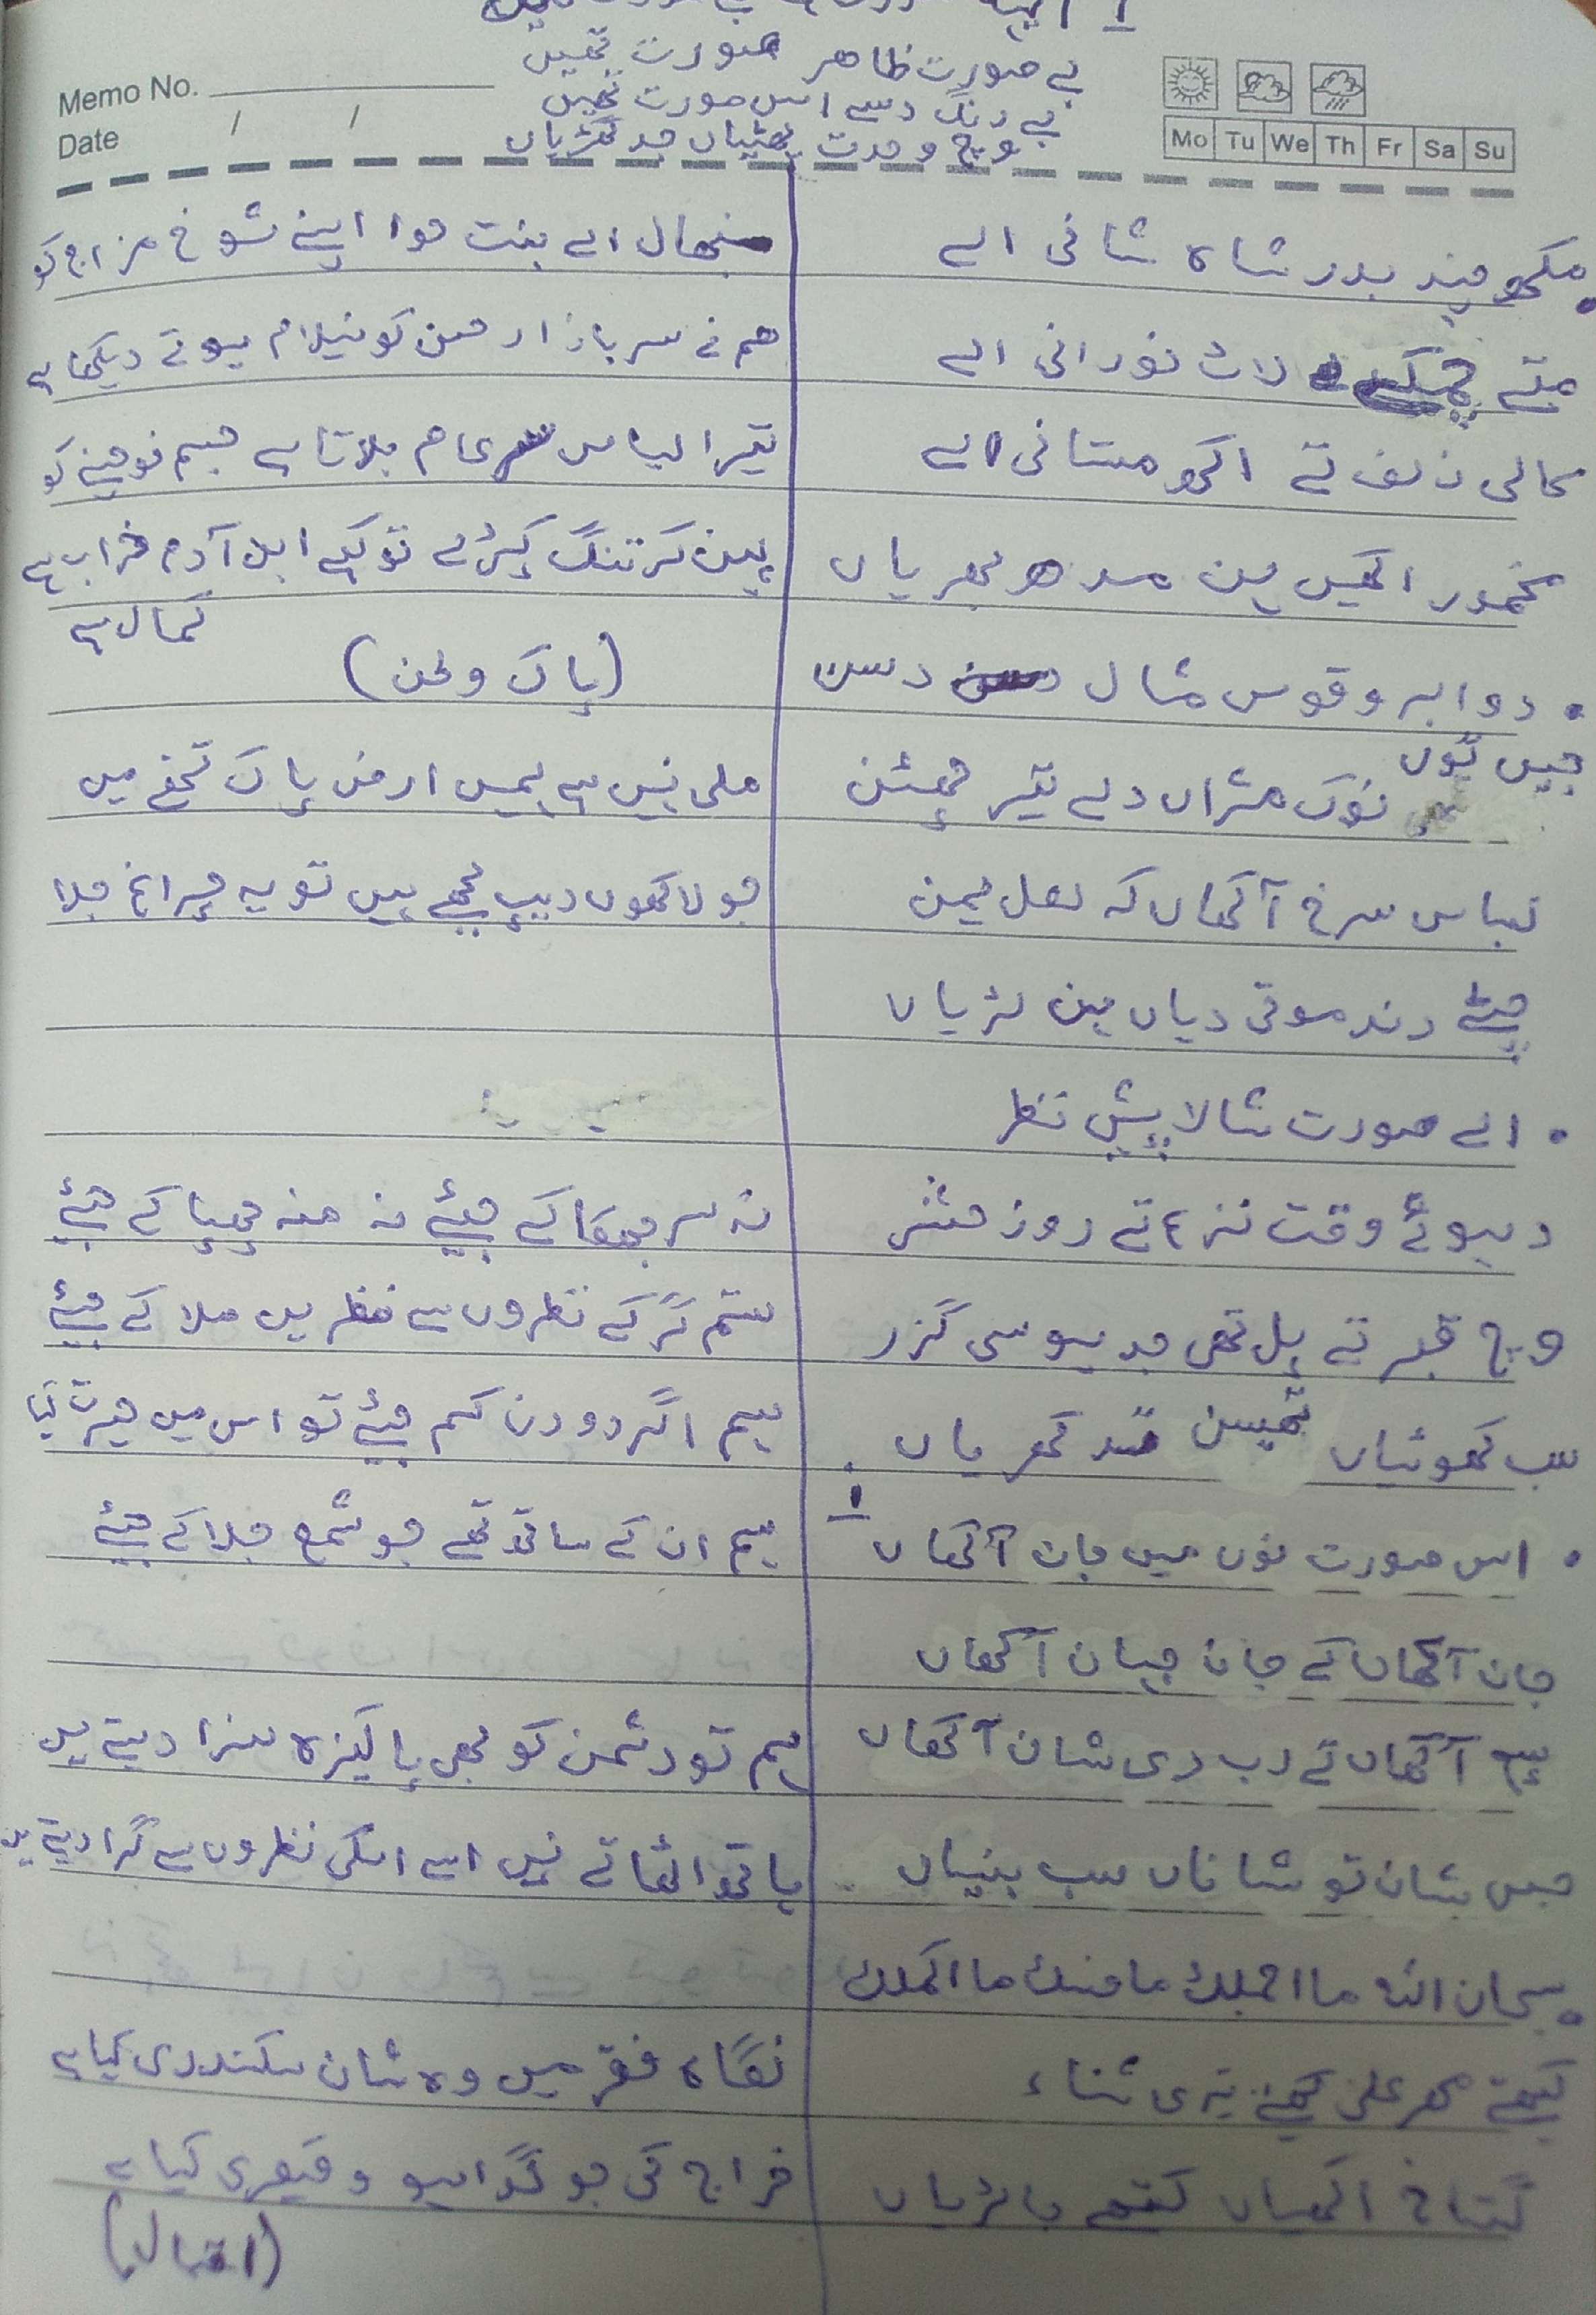 Memo No.
Date / /
Mo Tu We Th Fr Sa Su
بے صورت ظاہر صورت تھیں
بے رنگ دسے اس صورت تھیں
وچ وحدت پھٹیاں جد گھڑیاں
مکھ چند بدر شاہ شانی اے
متے چمکے لاٹ نورانی اے
کالی زلف تے اکھ مستانی اے
مخمور اکھیں ہین مدھ بھریاں
دو ابرو قوس مثال دسن
جیں توں نوک مژاں دے تیر چھٹن
لباں سرخ آکھاں کہ لعل یمن
چٹے دند موتی دیاں ہین لڑیاں
اے صورت شالا پیش نظر
رہوئے وقت نزع تے روز حشر
وچ قبر تے پل تھیں جد ہوسی گزر
سب کھوٹیاں تھیسن تد کھریاں
اس صورت نوں میں جان آکھاں
جان آکھاں کے جان جہان آکھاں
سچ آکھاں تے رب دی شان آکھاں
جس شان تو شاناں سب بنیاں
سبحان اللہ ما اجملك ما احسنك ما اکملك
کتھے مہر علی کتھے تیری ثناء
گستاخ اکھیاں کتھے جا لڑیاں
سنبھال اے بنت حوا اپنے شوخ مزاج کو
ہم نے سر بازار حسن کو نیلام ہوتے دیکھا ہے
تیرا لباس سرعام بلاتا ہے جسم نوچنے کو
پہن کر تنگ کپڑے تو کہے ابن آدم خراب ہے
کمال ہے
(پاک وطن)
ملی نہیں ہے ہمیں ارض پاک تحفے میں
جو لاکھوں دیپ بجھے ہیں تو یہ چراغ جلا
نہ سر جھکا کے جیئے نہ منہ چھپا کے جیئے
ستم گر کے نظروں سے نظریں ملا کے جیئے
ہم اگر دو دن کم جیئے تو اس میں حیرت کیا
ہم ان کے ساتھ تھے جو شمع جلا کے جیئے
ہم تو دشمن کو بھی پاکیزہ سزا دیتے ہیں
ہاتھ اٹھاتے نہیں اسے اسکی نظروں سے گرا دیتے ہیں
نگاہ فقر میں وہ شان سکندری کیا ہے
خراج کی جو گدا ہو وہ قیصری کیا ہے
(اقبال)